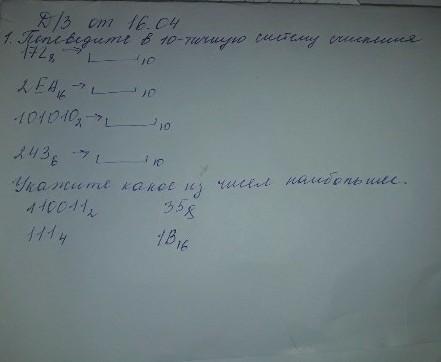 Д/З от 16.04
1. Переведите в 10-тичную систему счисления
172₈ → 10
2EA₁₆ → 10
101010₂ → 10
243₆ → 10
Укажите какое из чисел наибольшее.
110011₂ 35₈
111₄ 1B₁₆